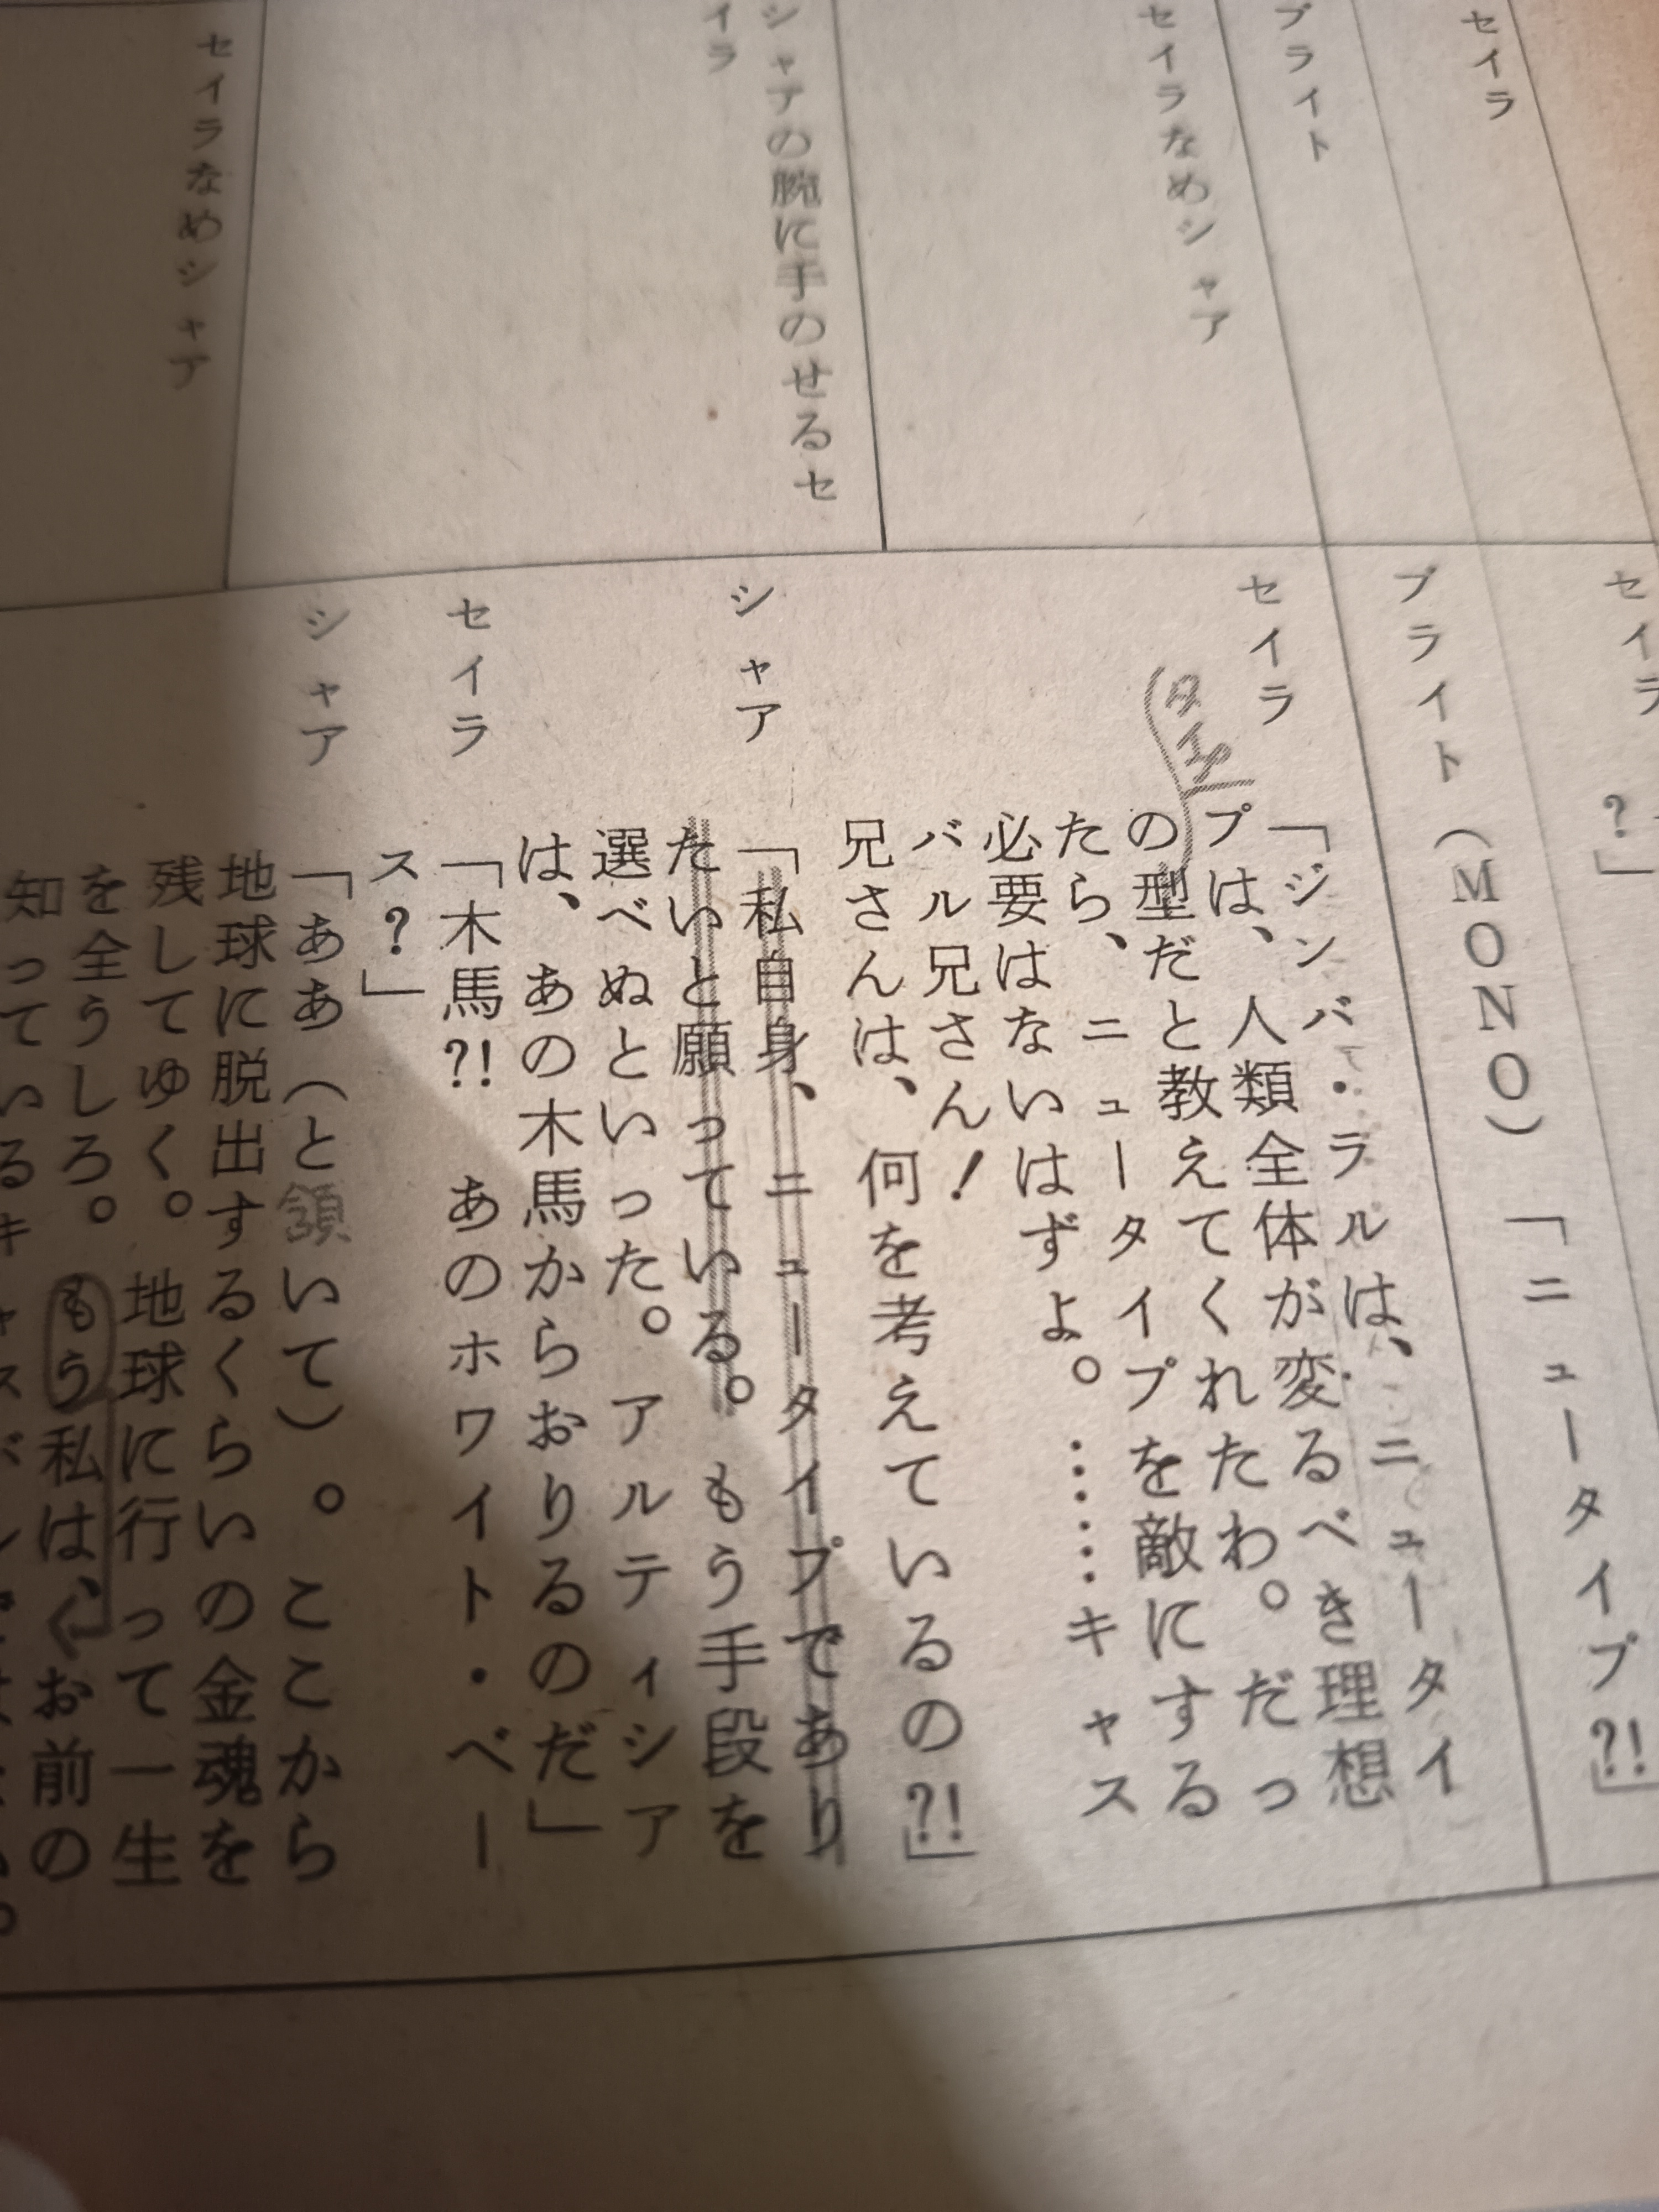 セイラ
ブライト
セイラなめシャア
シャアの腕に手のせるセ
イラ
セイラなめシャア
セイラ
?」
ブライト(MONO)「ニュータイプ?!」
セイラ
「ジンバ・ラルは、ニュータイ
プは、人類全体が変るべき理想
の型だと教えてくれたわ。だっ
たら、ニュータイプを敵にする
必要はないはずよ。……キャス
バル兄さん!
兄さんは、何を考えているの?!」
シャア
「私自身、ニュータイプであり
たいと願っている。もう手段を
選べぬといった。アルティシア
は、あの木馬からおりるのだ」
セイラ
「木馬?! あのホワイト・ベー
ス?」
シャア
「ああ(と頷いて)。ここから
地球に脱出するくらいの金魂を
残してゆく。地球に行って一生
を全うしろ。もう私は、お前の
知っているキャスバル